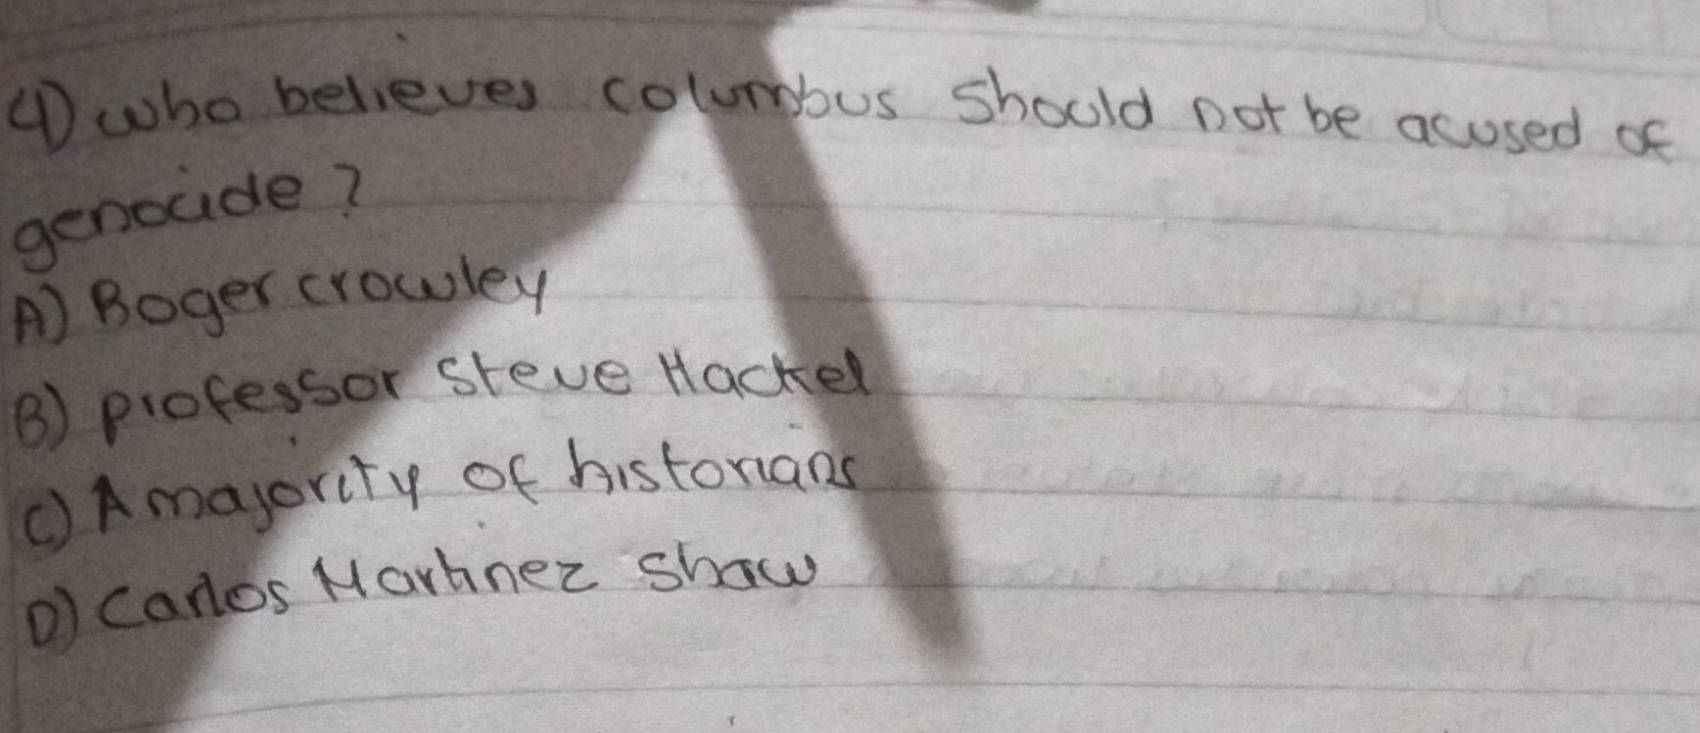 4) who believes columbus should not be acused of
genocide?
A) Boger crowley
B) professor Steve Hackel
C) A majority of historians
D) Carlos Martinez shaw